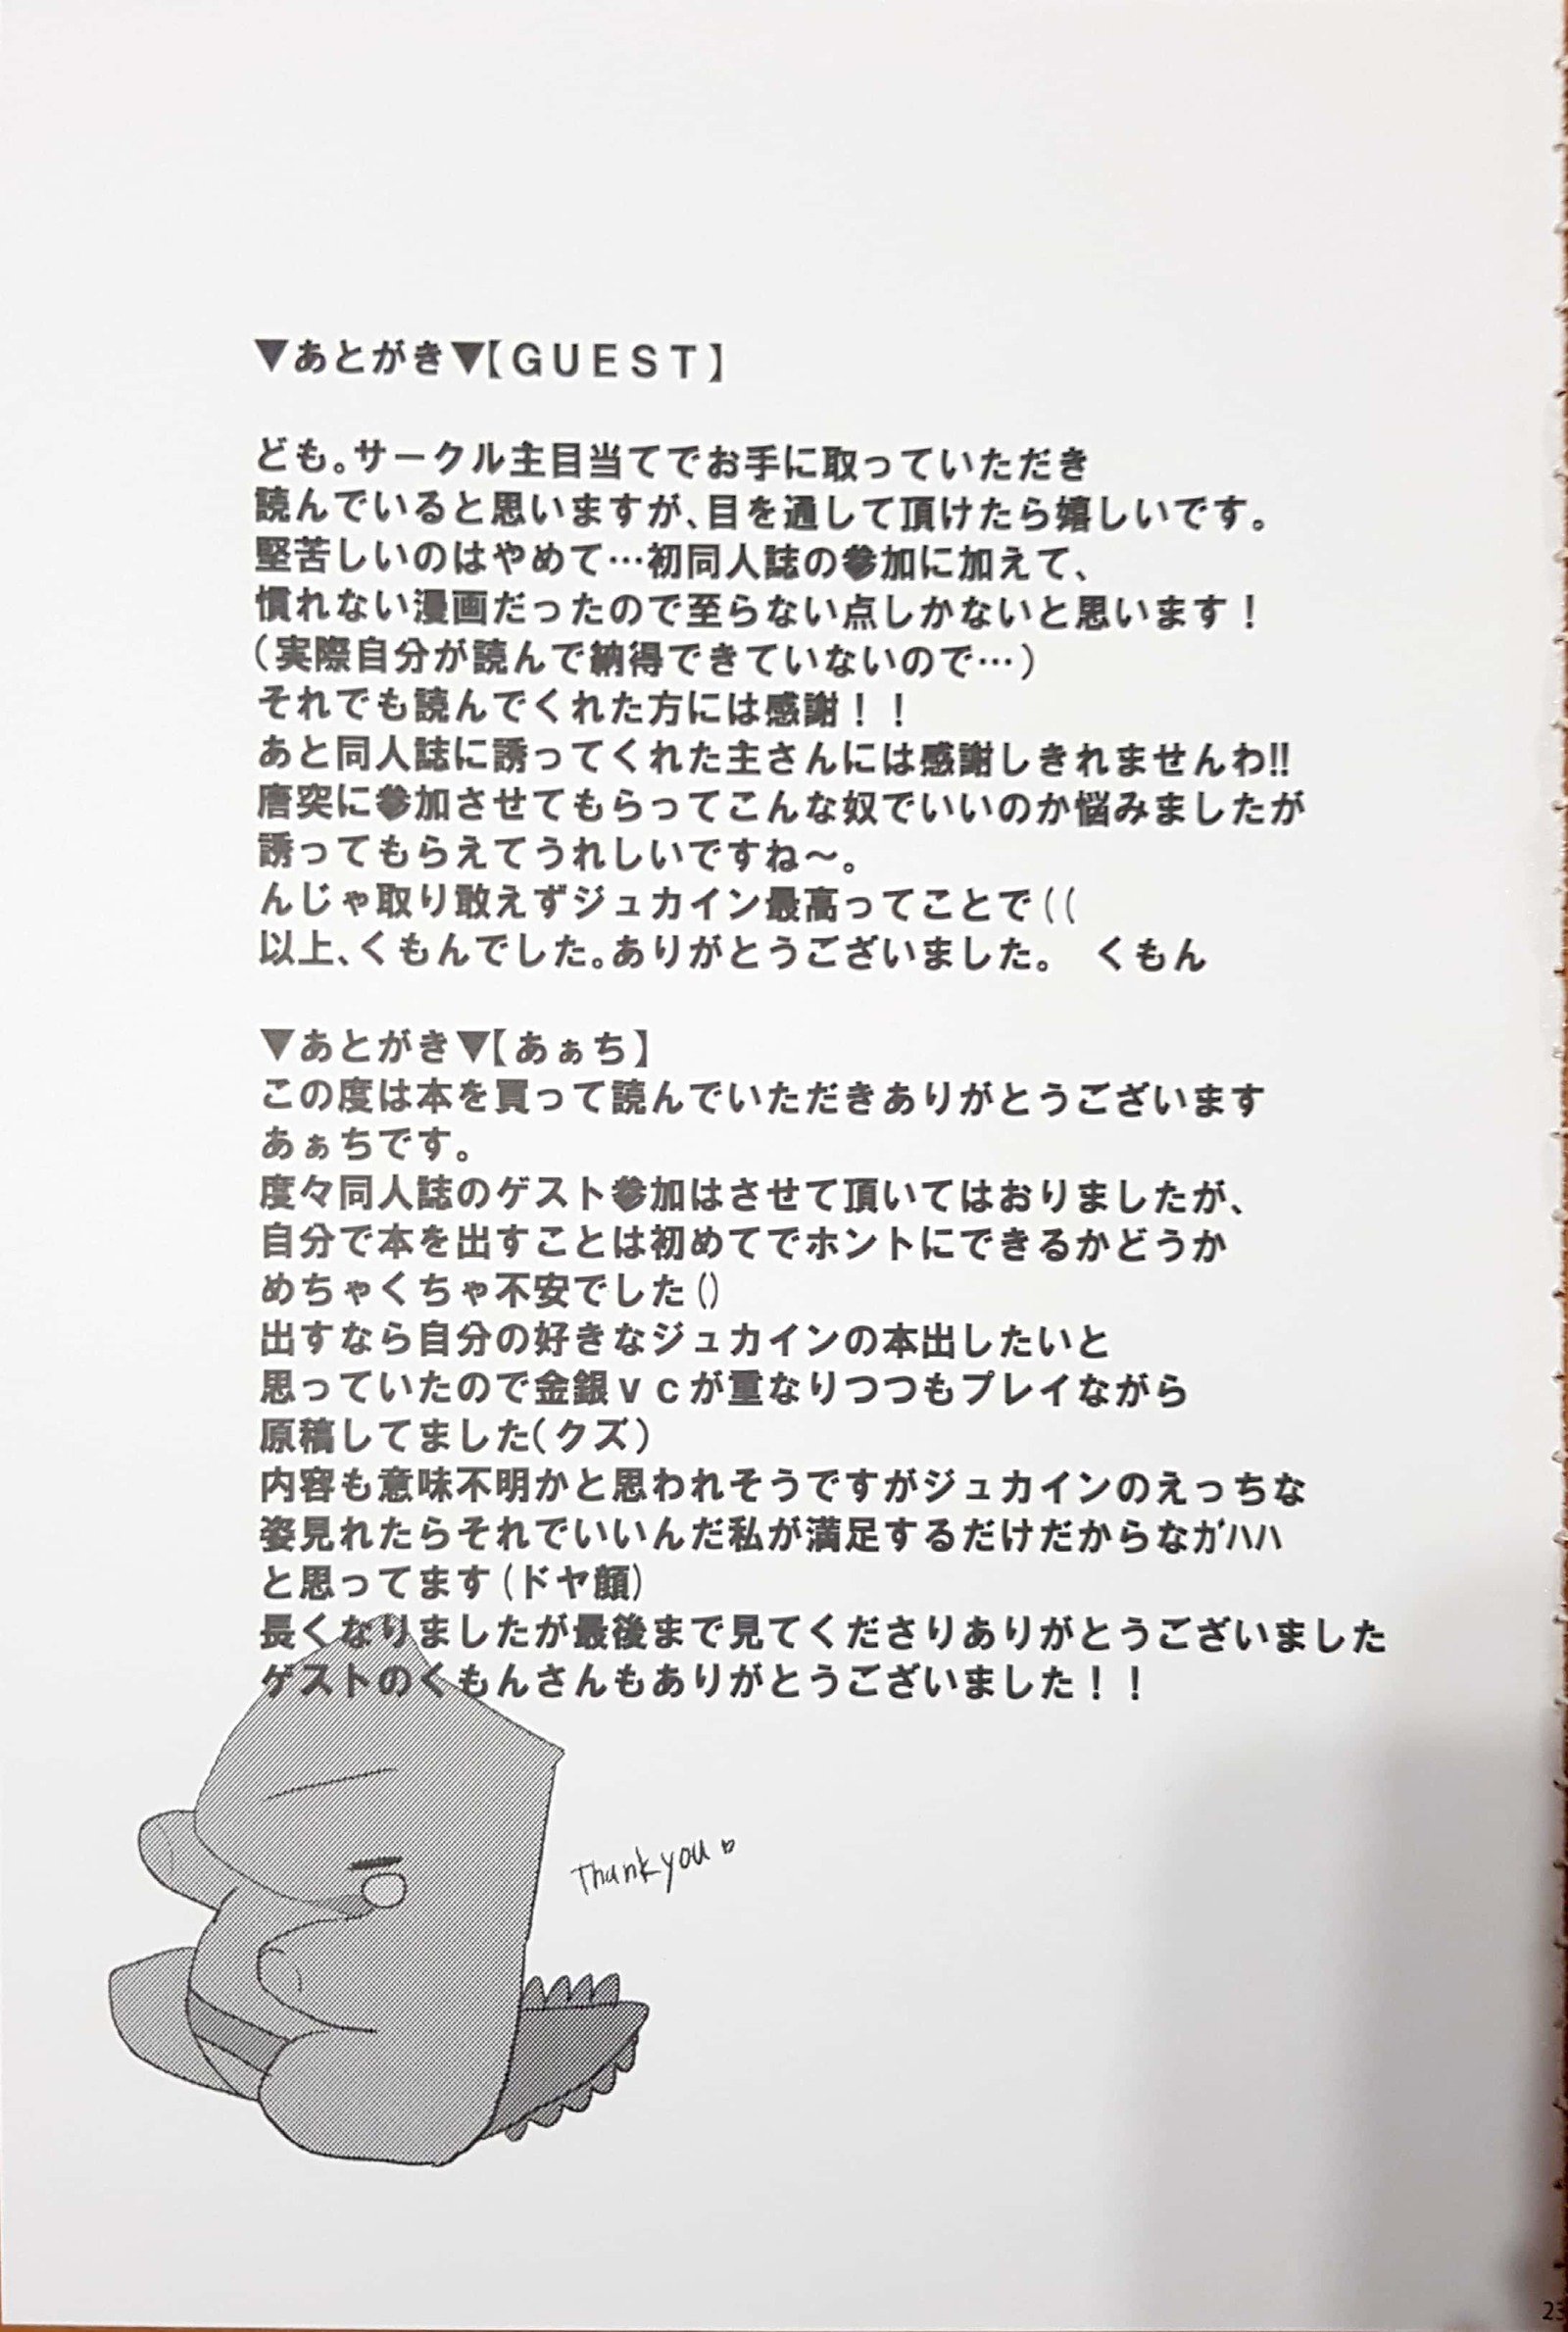 ▼あとがき▼【GUEST】
ども。サークル主目当てでお手に取っていただき
読んでいると思いますが、目を通して頂けたら嬉しいです。
堅苦しいのはやめて…初同人誌の参加に加えて、
慣れない漫画だったので至らない点しかないと思います！
（実際自分が読んで納得できていないので…）
それでも読んでくれた方には感謝！！
あと同人誌に誘ってくれた主さんには感謝しきれませんわ!!
唐突に参加させてもらってこんな奴でいいのか悩みましたが
誘ってもらえてうれしいですね～。
んじゃ取り敢えずジュカイン最高ってことで((
以上、くもんでした。ありがとうございました。　くもん
▼あとがき▼【あぁち】
この度は本を買って読んでいただきありがとうございます
あぁちです。
度々同人誌のゲスト参加はさせて頂いてはおりましたが、
自分で本を出すことは初めてでホントにできるかどうか
めちゃくちゃ不安でした()
出すなら自分の好きなジュカインの本出したいと
思っていたので金銀ｖｃが重なりつつもプレイながら
原稿してました（クズ）
内容も意味不明かと思われそうですがジュカインのえっちな
姿見れたらそれでいいんだ私が満足するだけだからなｶﾞﾊﾊ
と思ってます(ドヤ顔)
長くなりましたが最後まで見てくださりありがとうございました
ゲストのくもんさんもありがとうございました！！
Thank you♡
23